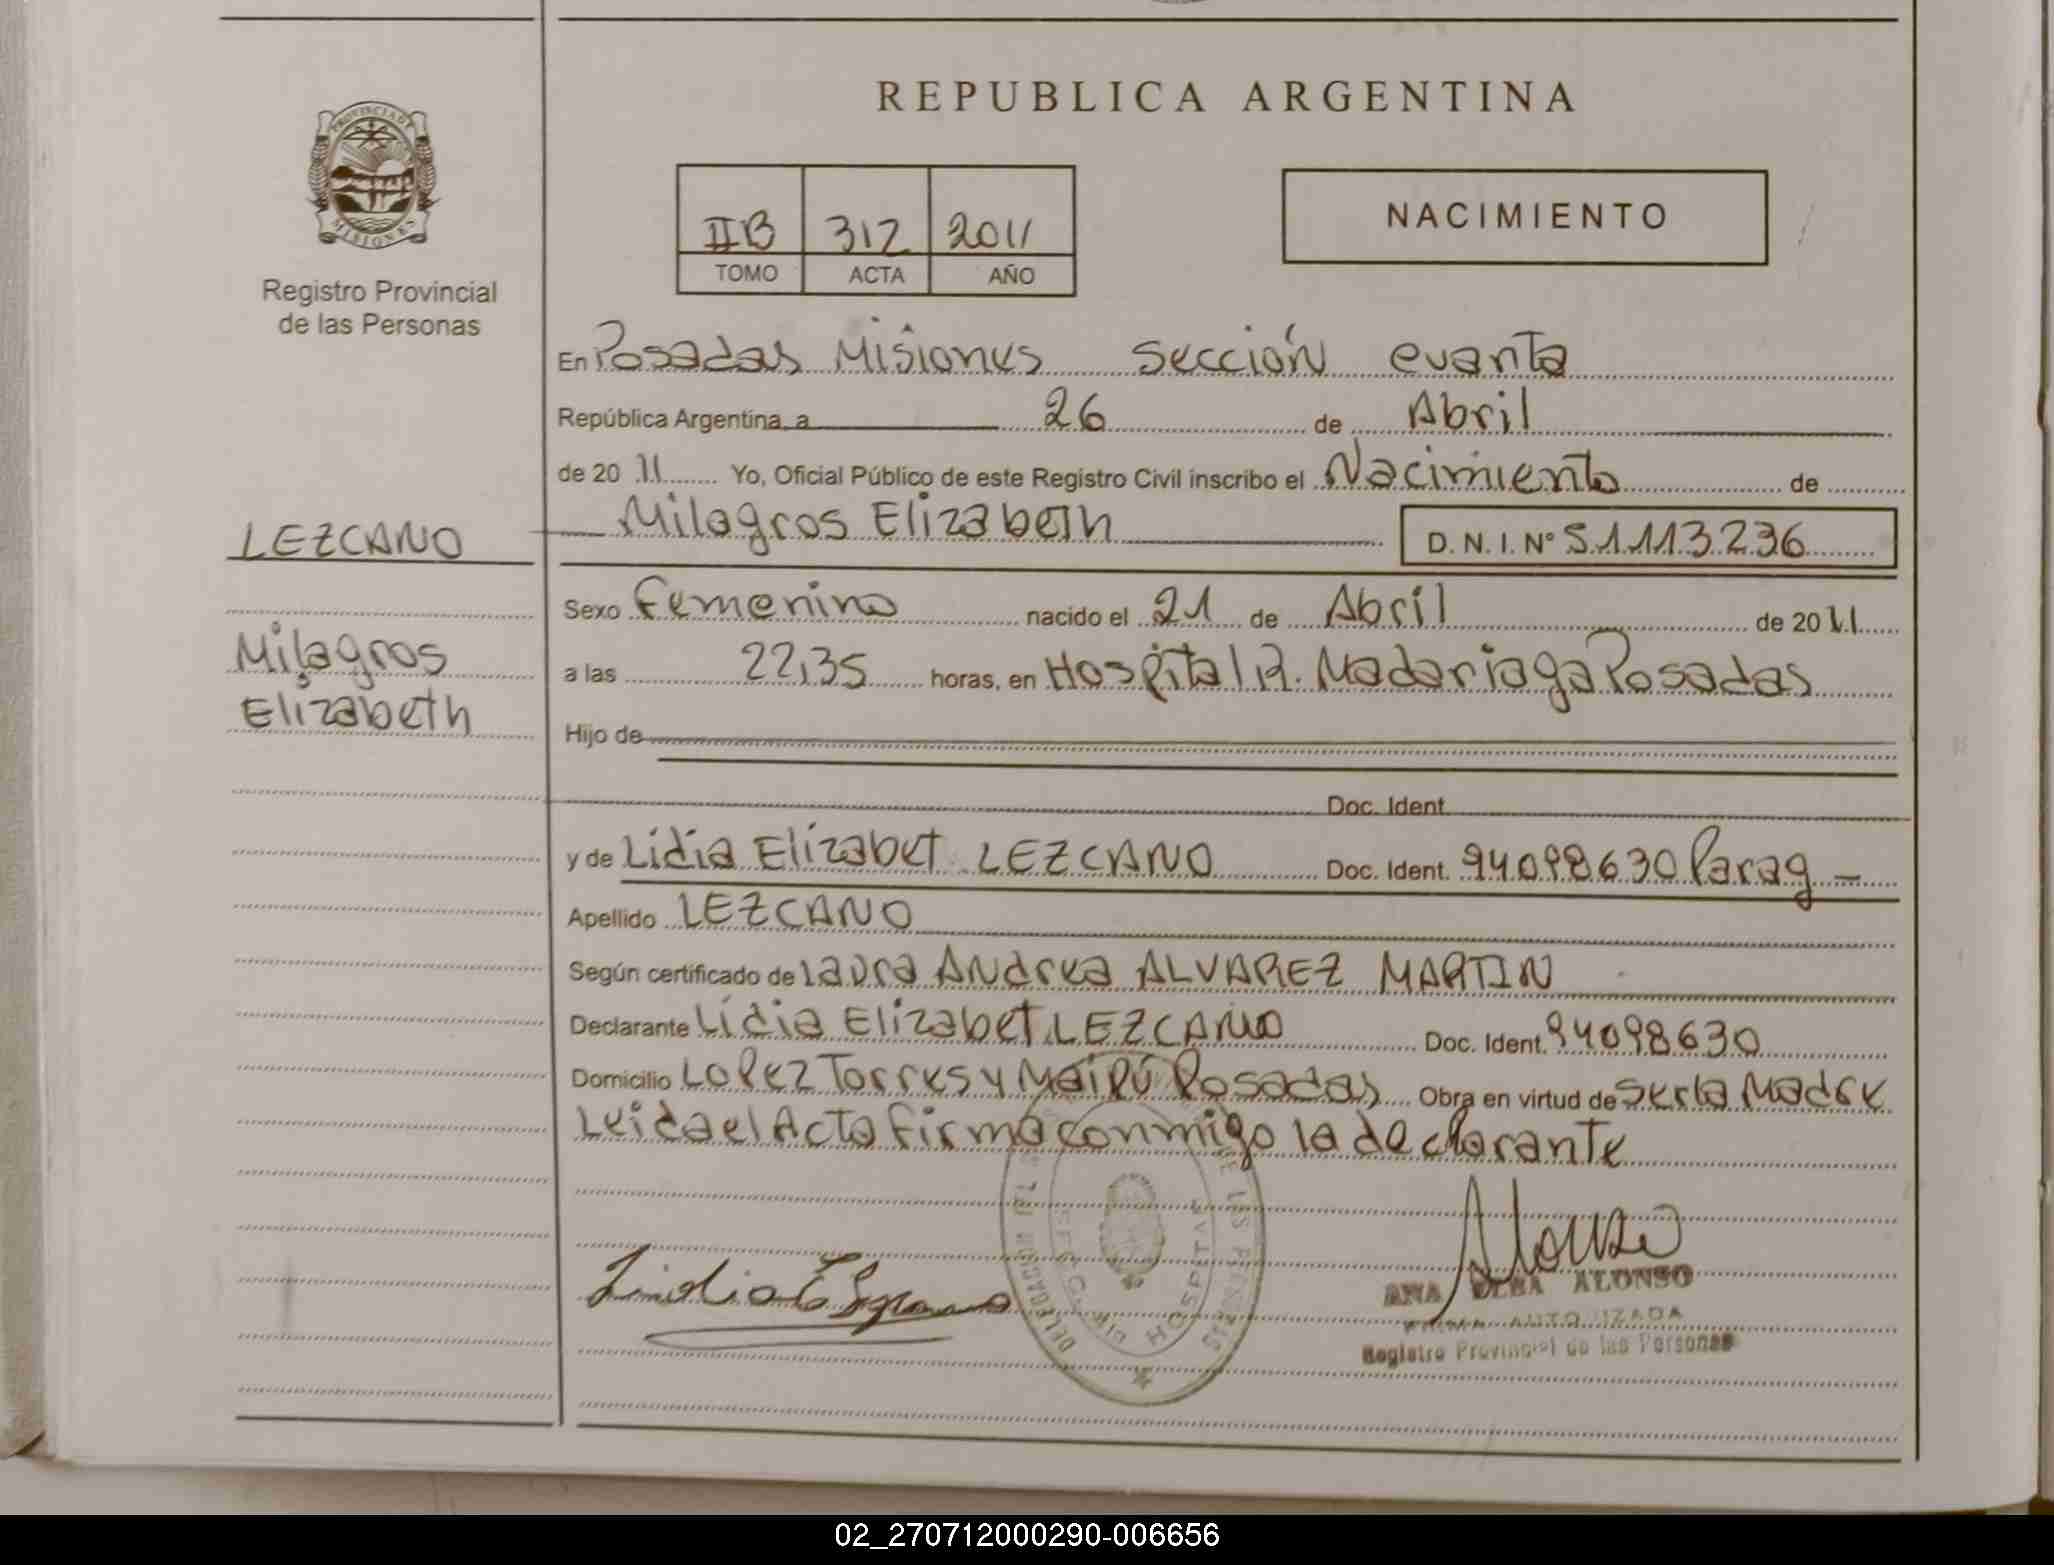 REPUBLICA ARGENTINA
PROVINCIA DE MISIONES
Registro Provincial
de las Personas
IIB 312 2011
TOMO ACTA AÑO
NACIMIENTO
En Posadas Misiones sección cuarta
República Argentina, a 26 de Abril
de 20 11 Yo, Oficial Público de este Registro Civil inscribo el Nacimiento de
LEZCANO
Milagros Elizabeth D. N. I. Nº 51113236
Milagros
Elizabeth
Sexo Femenino nacido el 21 de Abril de 20 11
a las 22,35 horas, en Hospital R. Madariaga Posadas
Hijo de
Doc. Ident.
y de Lidia Elizabet LEZCANO Doc. Ident. 94098630 Parag
Apellido LEZCANO
Según certificado de Laura Andrea ALVAREZ MARTIN
Declarante Lidia Elizabet LEZCANO Doc. Ident. 94098630
Domicilio Lopez Torres y Maipú Posadas Obra en virtud de ser la Madre
Leida el Acta firma conmigo la declarante
ANA ALONSO
FIRMA AUTORIZADA
Registro Provincial de las Personas
HOSPITAL
02_270712000290-006656